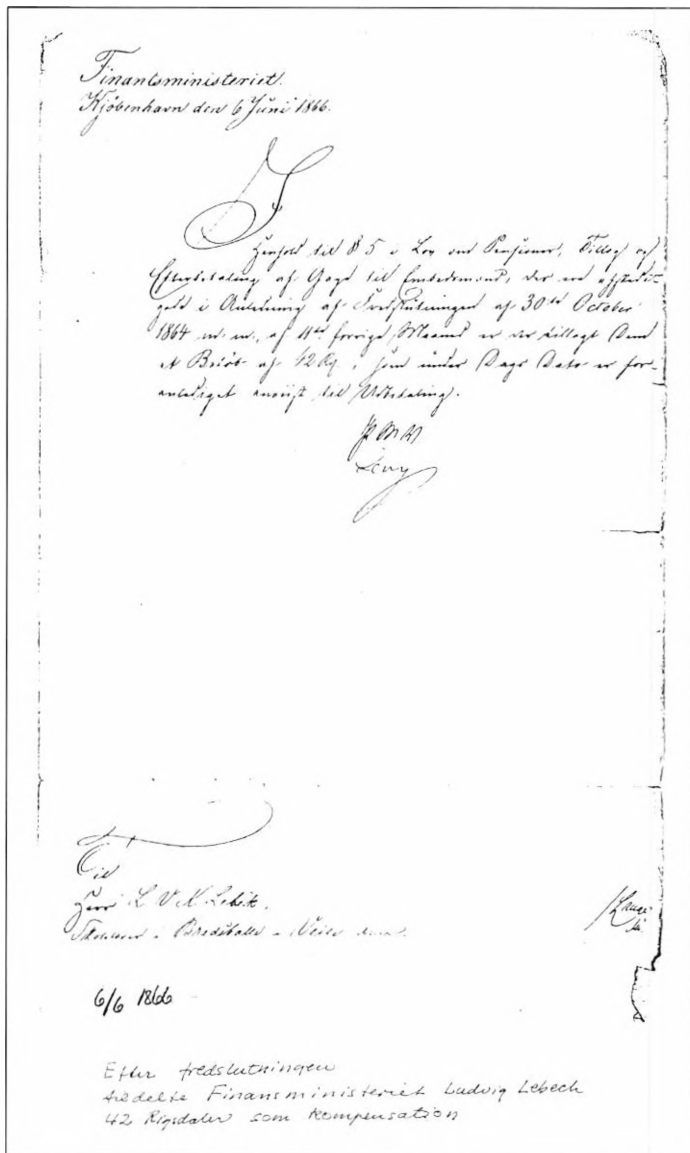 Finantsministeriet.
Kjöbenhavn den 6 Juni 1866.
I
Henhold til § 5 i Lov om Pensioner, Tillæg og
Efterbetaling af Gage til Embedsmænd, der ere afskedi-
gede i Anledning af Fredslutningen af 30te October
1864 m. m., af 11te forrige Maaned er der tillagt Dem
et Beløb af 42 Rd., som under Dags Dato er for-
anlediget anviist til Udbetaling.
P M V
Levy
Til
Herr L V K Lebek.
i Bredstall Veile
6/6 1866
Efter fredslutningen
tildelte Finansministeriet Ludvig Lebech
42 Rigsdaler som kompensation